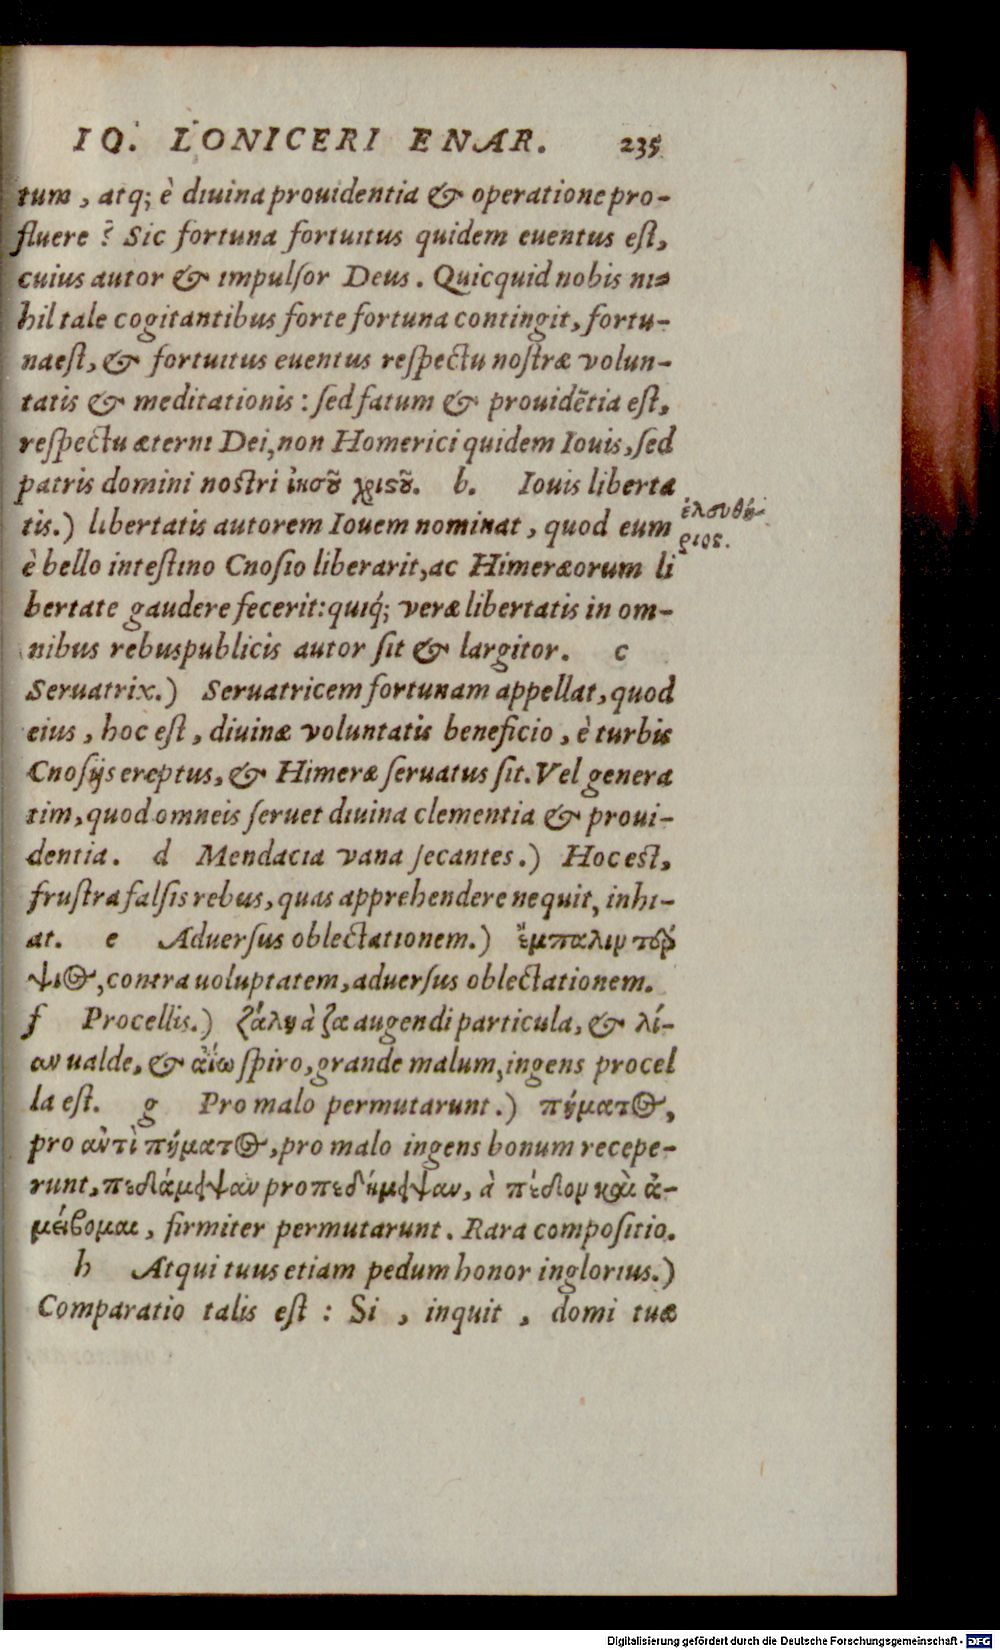 IO. LONICERI ENAR. 235
tum, atq; è diuina prouidentia & operatione pro-
fluere? Sic fortuna fortuitus quidem euentus est,
cuius autor & impulsor Deus. Quicquid nobis ni-
hil tale cogitantibus forte fortuna contingit, fortu-
na est, & fortuitus euentus respectu nostræ volun-
tatis & meditationis: sed fatum & prouidētia est,
respectu æterni Dei, non Homerici quidem Iouis, sed
patris domini nostri ἰησοῦ χριστοῦ. b. Iouis liberta
tis.) libertatis autorem Iouem nominat, quod eum
ἐλευθέ-
ριος.
è bello intestino Cnosio liberarit, ac Himeræorum li
bertate gaudere fecerit: quiq́; veræ libertatis in om-
nibus rebuspublicis autor sit & largitor. c
Seruatrix.) Seruatricem fortunam appellat, quod
eius, hoc est, diuinæ voluntatis beneficio, è turbis
Cnosijs ereptus, & Himeræ seruatus sit. Vel genera
tim, quod omneis seruet diuina clementia & proui-
dentia. d Mendacia vana secantes.) Hoc est,
frustra falsis rebus, quas apprehendere nequit, inhi-
at. e Aduersus oblectationem.) ἔμπαλιν τέρ
ψιος, contra uoluptatem, aduersus oblectationem.
f Procellis.) ζάλη à ζα augendi particula, & λί-
αν ualde, & ἀΐω spiro, grande malum, ingens procel
la est. g Pro malo permutarunt.) πήματος,
pro ἀντὶ πήματος, pro malo ingens bonum recepe-
runt, πεδιάμειψαν pro πεδήμειψαν, à πέδιον καὶ ἀ-
μείβομαι, firmiter permutarunt. Rara compositio.
h Atqui tuus etiam pedum honor inglorius.)
Comparatio talis est: Si, inquit, domi tuæ
Digitalisierung gefördert durch die Deutsche Forschungsgemeinschaft - DFG